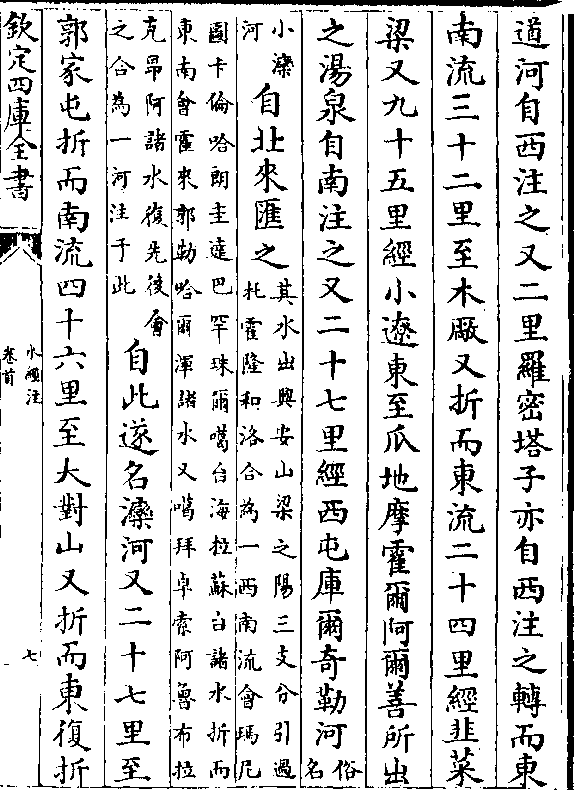 道河自西注之又二里羅密塔子亦自西注之轉而東
南流三十二里至木廠又折而東流二十四里經韭菜
梁又九十五里經小遼東至瓜地摩霍爾阿爾善所出
之湯泉自南注之又二十七里經西屯庫爾奇勒河俗名
小灤河自北來匯之其水出興安山梁之陽三支分引過
托霍隆和洛合為一西南流會瑪尼
圖卡倫哈朗圭達巴罕珠爾噶台海拉蘇台諸水折而
東南會霍來郭勒哈爾渾諸水又噶拜卓索阿魯布拉
克昂阿諸水復先後會
之合為一河注于此自此遂名灤河又二十七里至
郭家屯折而南流四十六里至大對山又折而東復折
欽定四庫全書
水經注
卷首
七